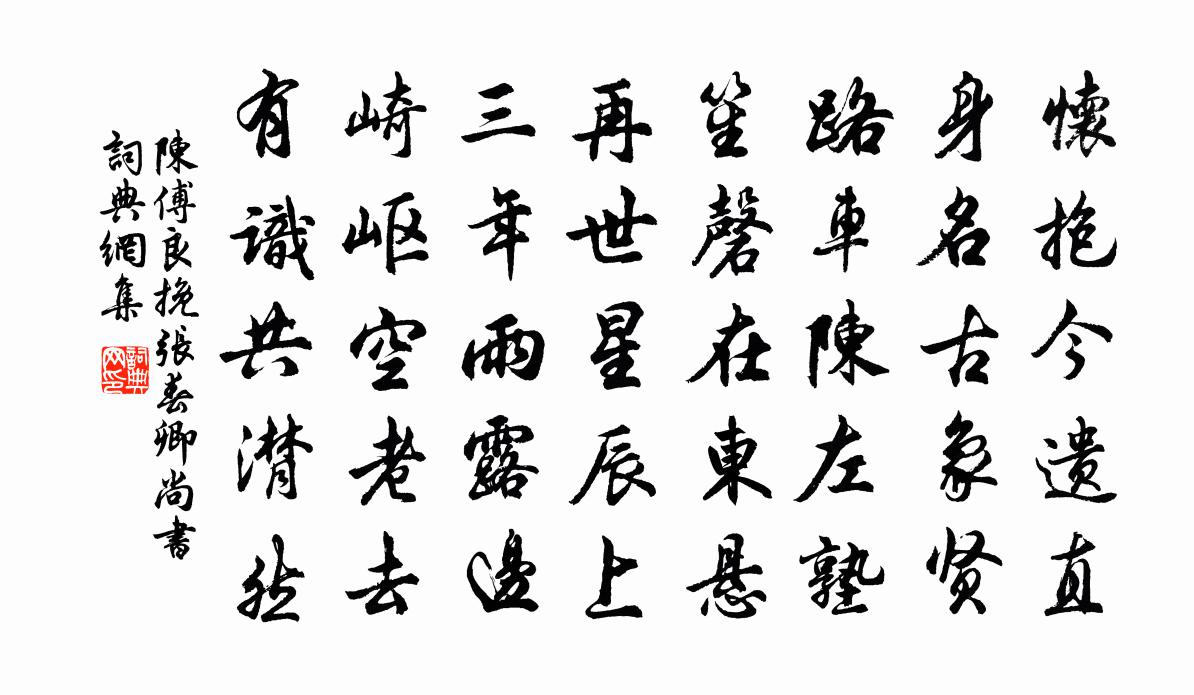 懷抱今遺直
身名古象贤
路車陳左塾
笙磬在東悬
再世星辰上
三年雨露邊
崎岖空老去
有識共潸然
陳傅良挽張春卿尚書
詞典網集
詞典
网印